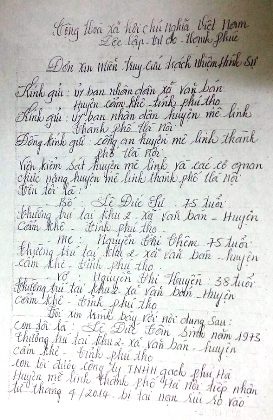 Cộng Hoà xã hội chủ nghĩa Việt Nam
Độc lập tự do Hạnh phúc
Đơn xin miễn truy cứu trách nhiệm hình sự
Kính gửi: uỷ ban nhân dân xã văn bán
Huyện cẩm khê tỉnh phú thọ
Kính gửi: uỷ ban nhân dân huyện mê linh
thành phố Hà nội
Đồng kính gửi: công an huyện mê linh thành
phố Hà nội
Viện kiểm sát huyện mê linh và các cơ quan
chức năng huyện mê linh thành phố Hà Nội
Tên tôi là:
Bố: Lê Đức 75 tuổi
thường trú tại khu 2 xã văn bán - Huyện
Cẩm khê - tỉnh phú thọ
- Mẹ: Nguyễn thị thêm 75 tuổi
thường trú tại khu 2 xã văn bán - huyện
cẩm khê - tỉnh phú thọ
- Vợ: Nguyễn thị Huyền 38 tuổi
thường trú tại khu 2 xã văn bán - Huyện
cẩm khê - tỉnh phú thọ
Tôi xin trình bày với nội dung sau:
con tôi là: Lê Đức Sinh năm 1973
thường trú tại khu 2 xã văn bán - huyện
cẩm khê - tỉnh phú thọ
con tôi được công ty TNHH gạch phú Hà
Huyện mê linh thành phố Hà nội tiếp nhận
từ tháng 9/2014 bị tai nạn rủi ro vào